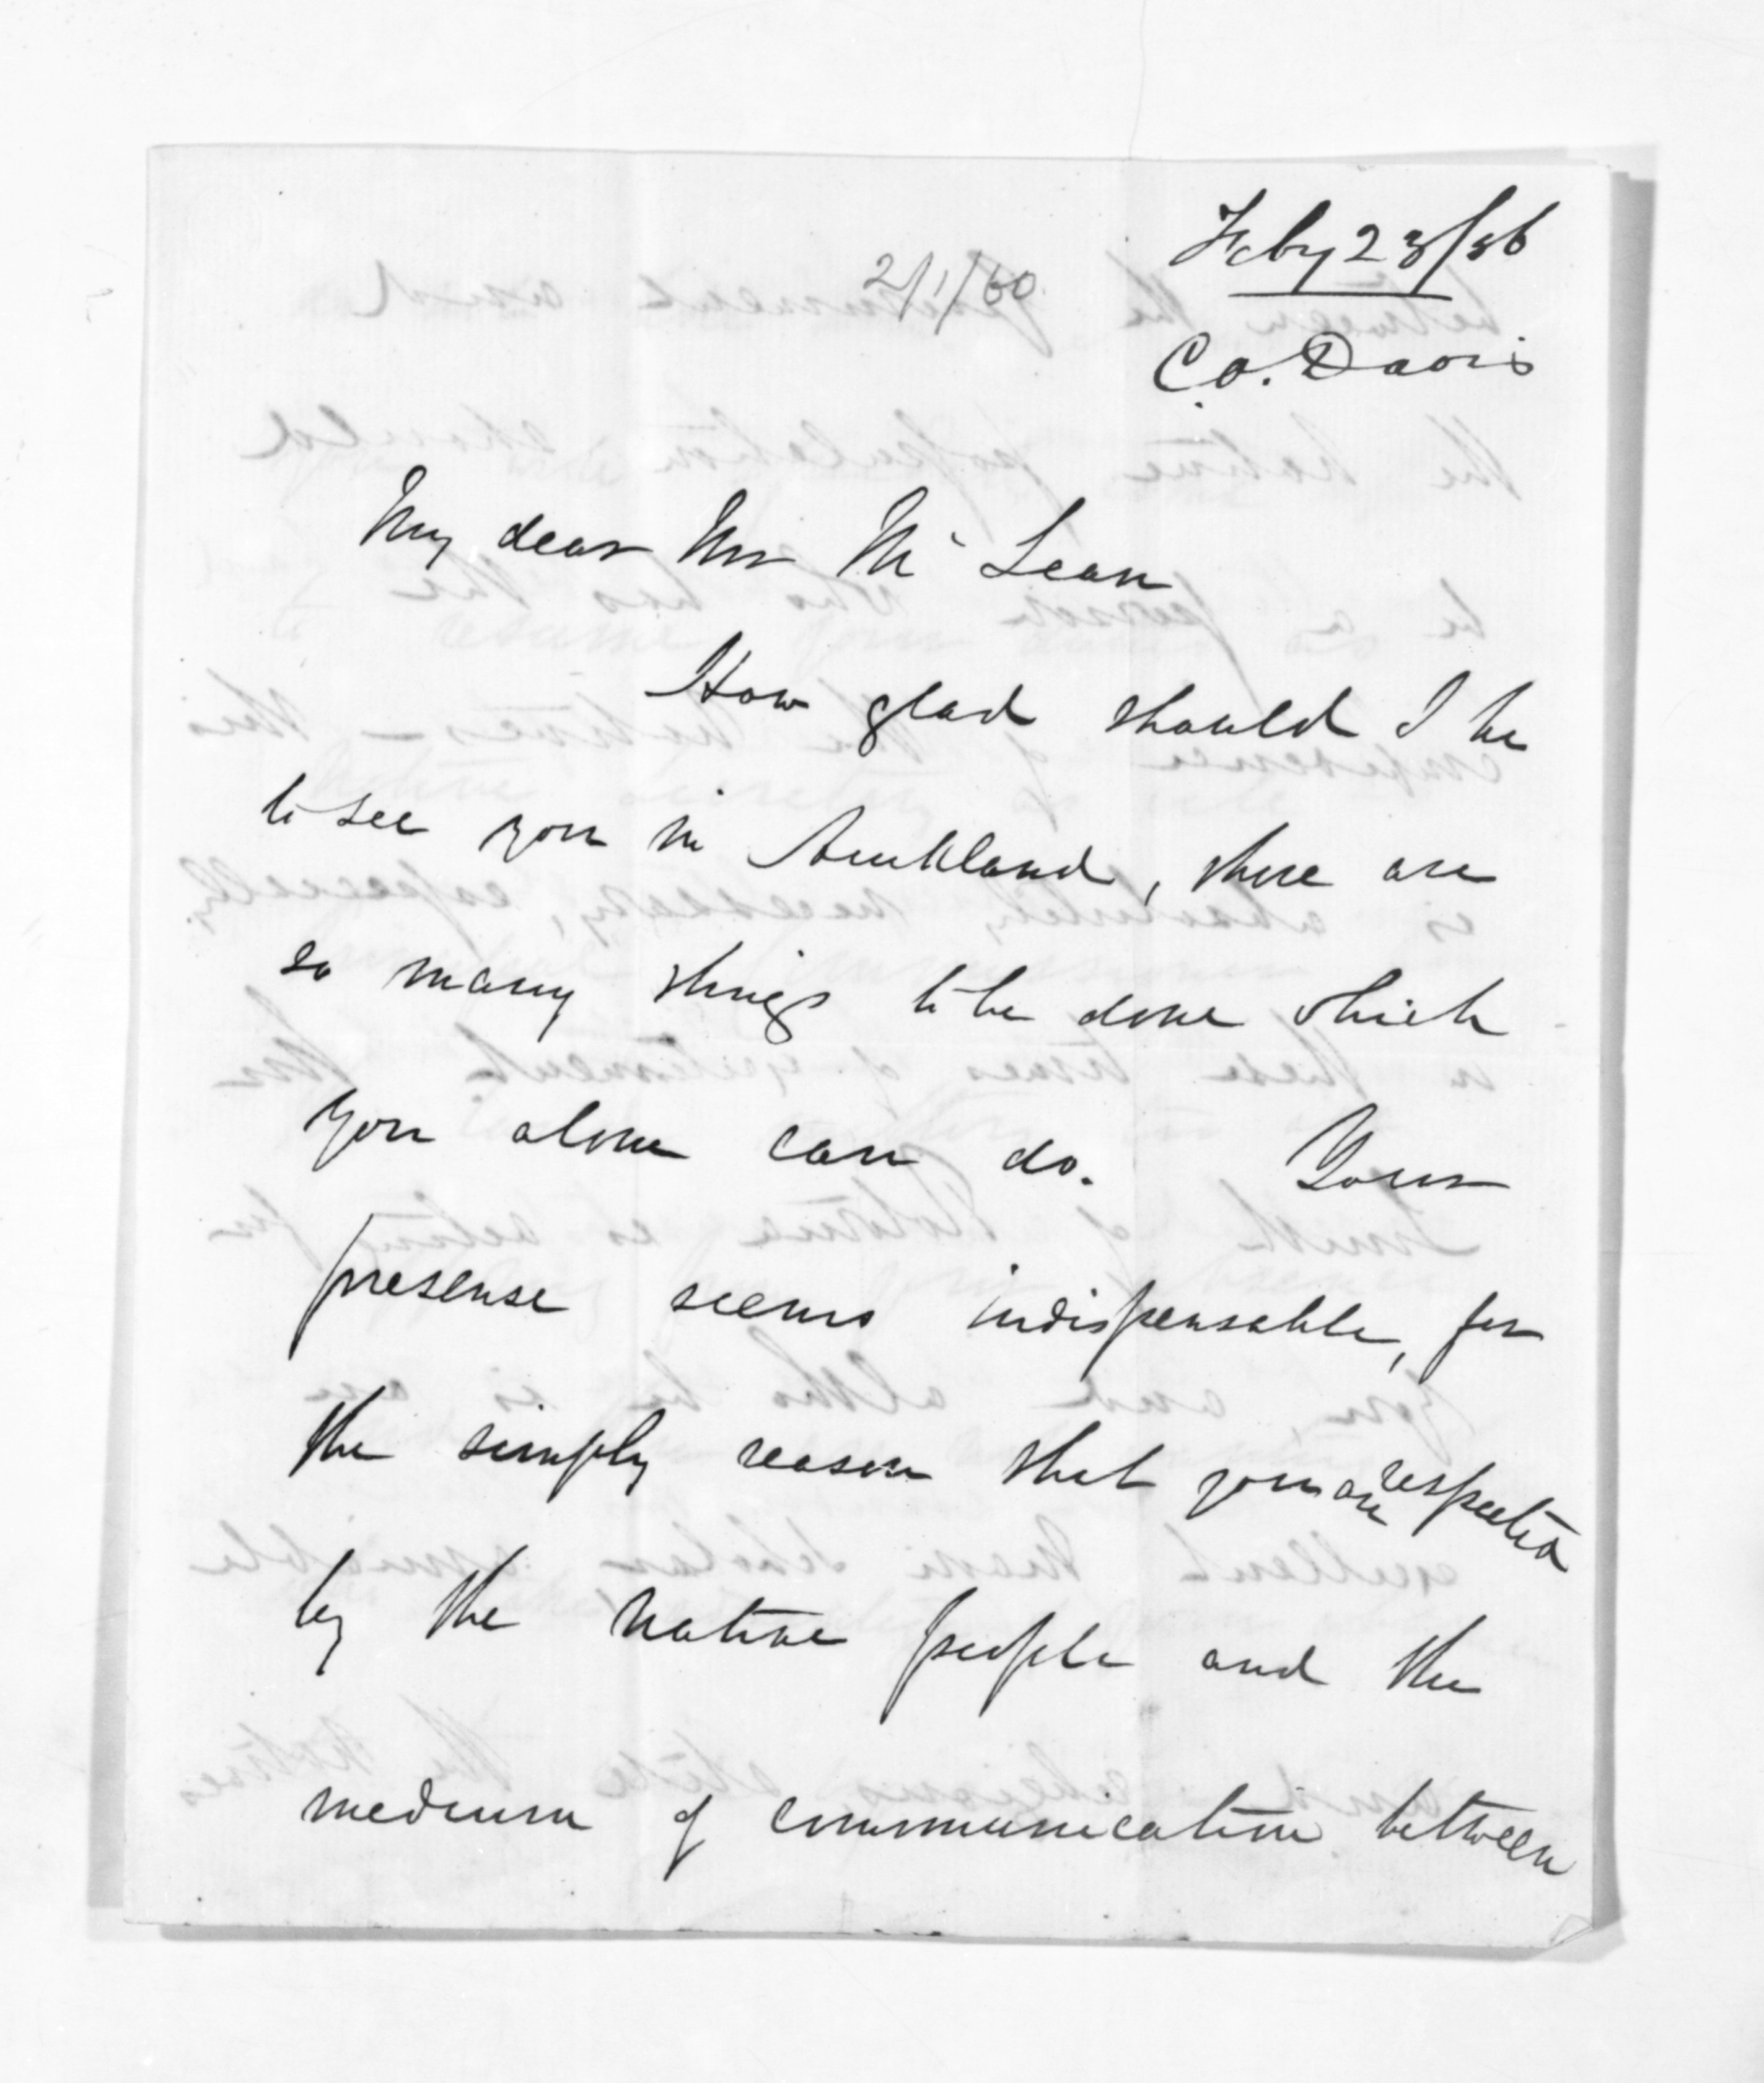 Feby 23/56
2/1/60.
C.O. Davis
My dear Mr McLean
How glad should I be
to see you in Auckland, there are
so many things to be done which
you alone can do. Your
presense seems indispensable, for
the simply reason that you are respected
by the native people and the
medium of communication between